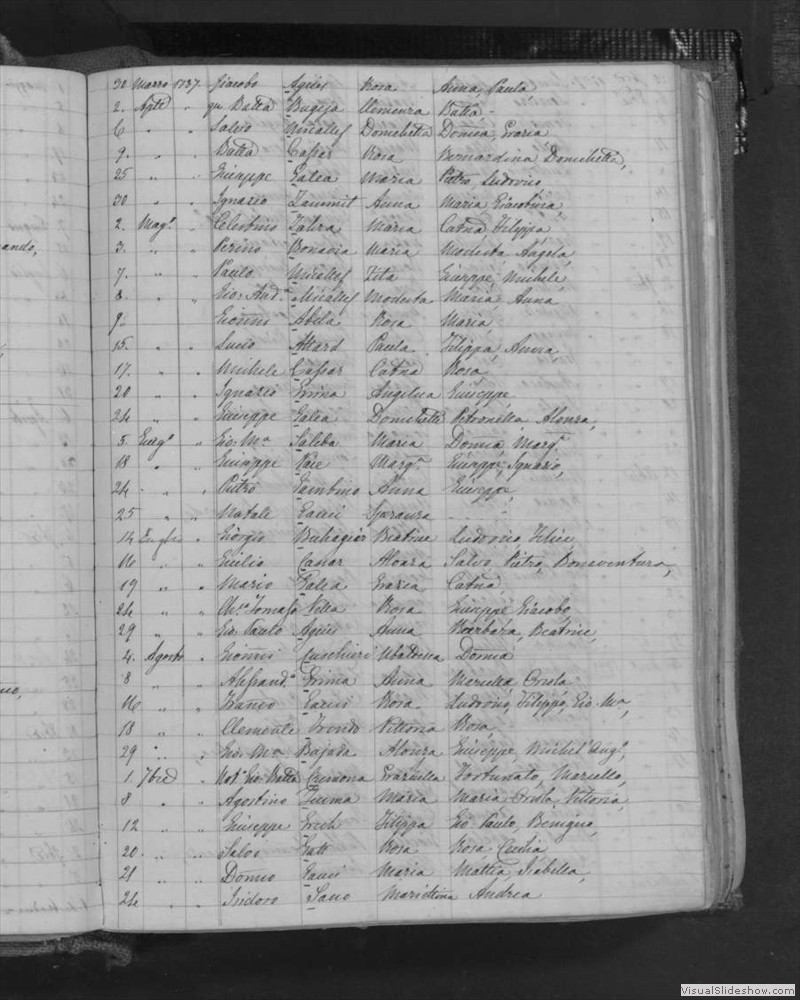 ando,
30 Marzo 1737 Giacobo Agius Rosa Anna, Paula
2. Aple " qu Batta Bugeja Clemenza Batta
6 " " Salvo Micallef Domchetta Domca, Grazia
9. " " Batta Caspar Rosa Bernardina Domchetta,
25 " " Giuseppe Galea Maria Pietro, Ludovico,
30 " " Ignazio Zammit Anna Maria, Giacobina,
2. Magº " Celestino Zahra Maria Catna Filippa
3. " " Perino Bonavia Maria Modesta, Angela,
7. " " Paulo Micallef Zita Giuseppe, Michele,
8. " " Gio: Andª Micallef Modesta Maria, Anna
9. Gionni Abela Rosa Maria
15 " " Lucio Attard Paula Filippa, Anna
17. " " Michele Caspar Catna Rosa
20 " " Ignazio Grima Angelica Giuseppe,
24 " " Giuseppe Galea Domchetta Petronella, Alonza,
5 Giugº " Gio: Mª Saliba Maria Domca, Margª
18 " " Giuseppe Margª Giuseppe, Ignazio,
24 " " Pietro Gambino Anna Giuseppe,
25 " " Natale Gauci Speranza
14 Luglio " Giorgio Buhagiar Beatrice Ludovico, Felice
16 " " Giulio Cassar Aloara Salvo, Pietro, Bonaventura,
19 " " Mario Galea Grazia Catna,
24 " " Chº Tomaso Vella Rosa Giuseppe, Giacobo
29 " " Gio: Paulo Agius Anna Barbara, Beatrice,
4. Agosto " Gionni Cuschieri Valdesca Domca
8 " " Alessandº Grima Anna Maruzza, Orsola
16 " " Franco Gauci Rosa Ludovico, Filippo, Gio: Mª,
18 " " Clemente Vittoria Rosa,
29 " " Gio: Mª Bajada Alonza Giuseppe, Michel'Angº,
1. 7bre " Notº Gio: Batta Cremona Graziella Fortunato, Marcello,
8 " " Agostino Maria Maria, Orsola, Vittoria,
12 " " Giuseppe Grech Filippa Gio: Paulo, Benigno,
20. " " Salvo Gatt Rosa Rosa, Cecilia
21 " " Domco Gauci Maria Mattia, Isabella,
24 " " Isidoro Maridiana Andrea
VisualSlideshow.com